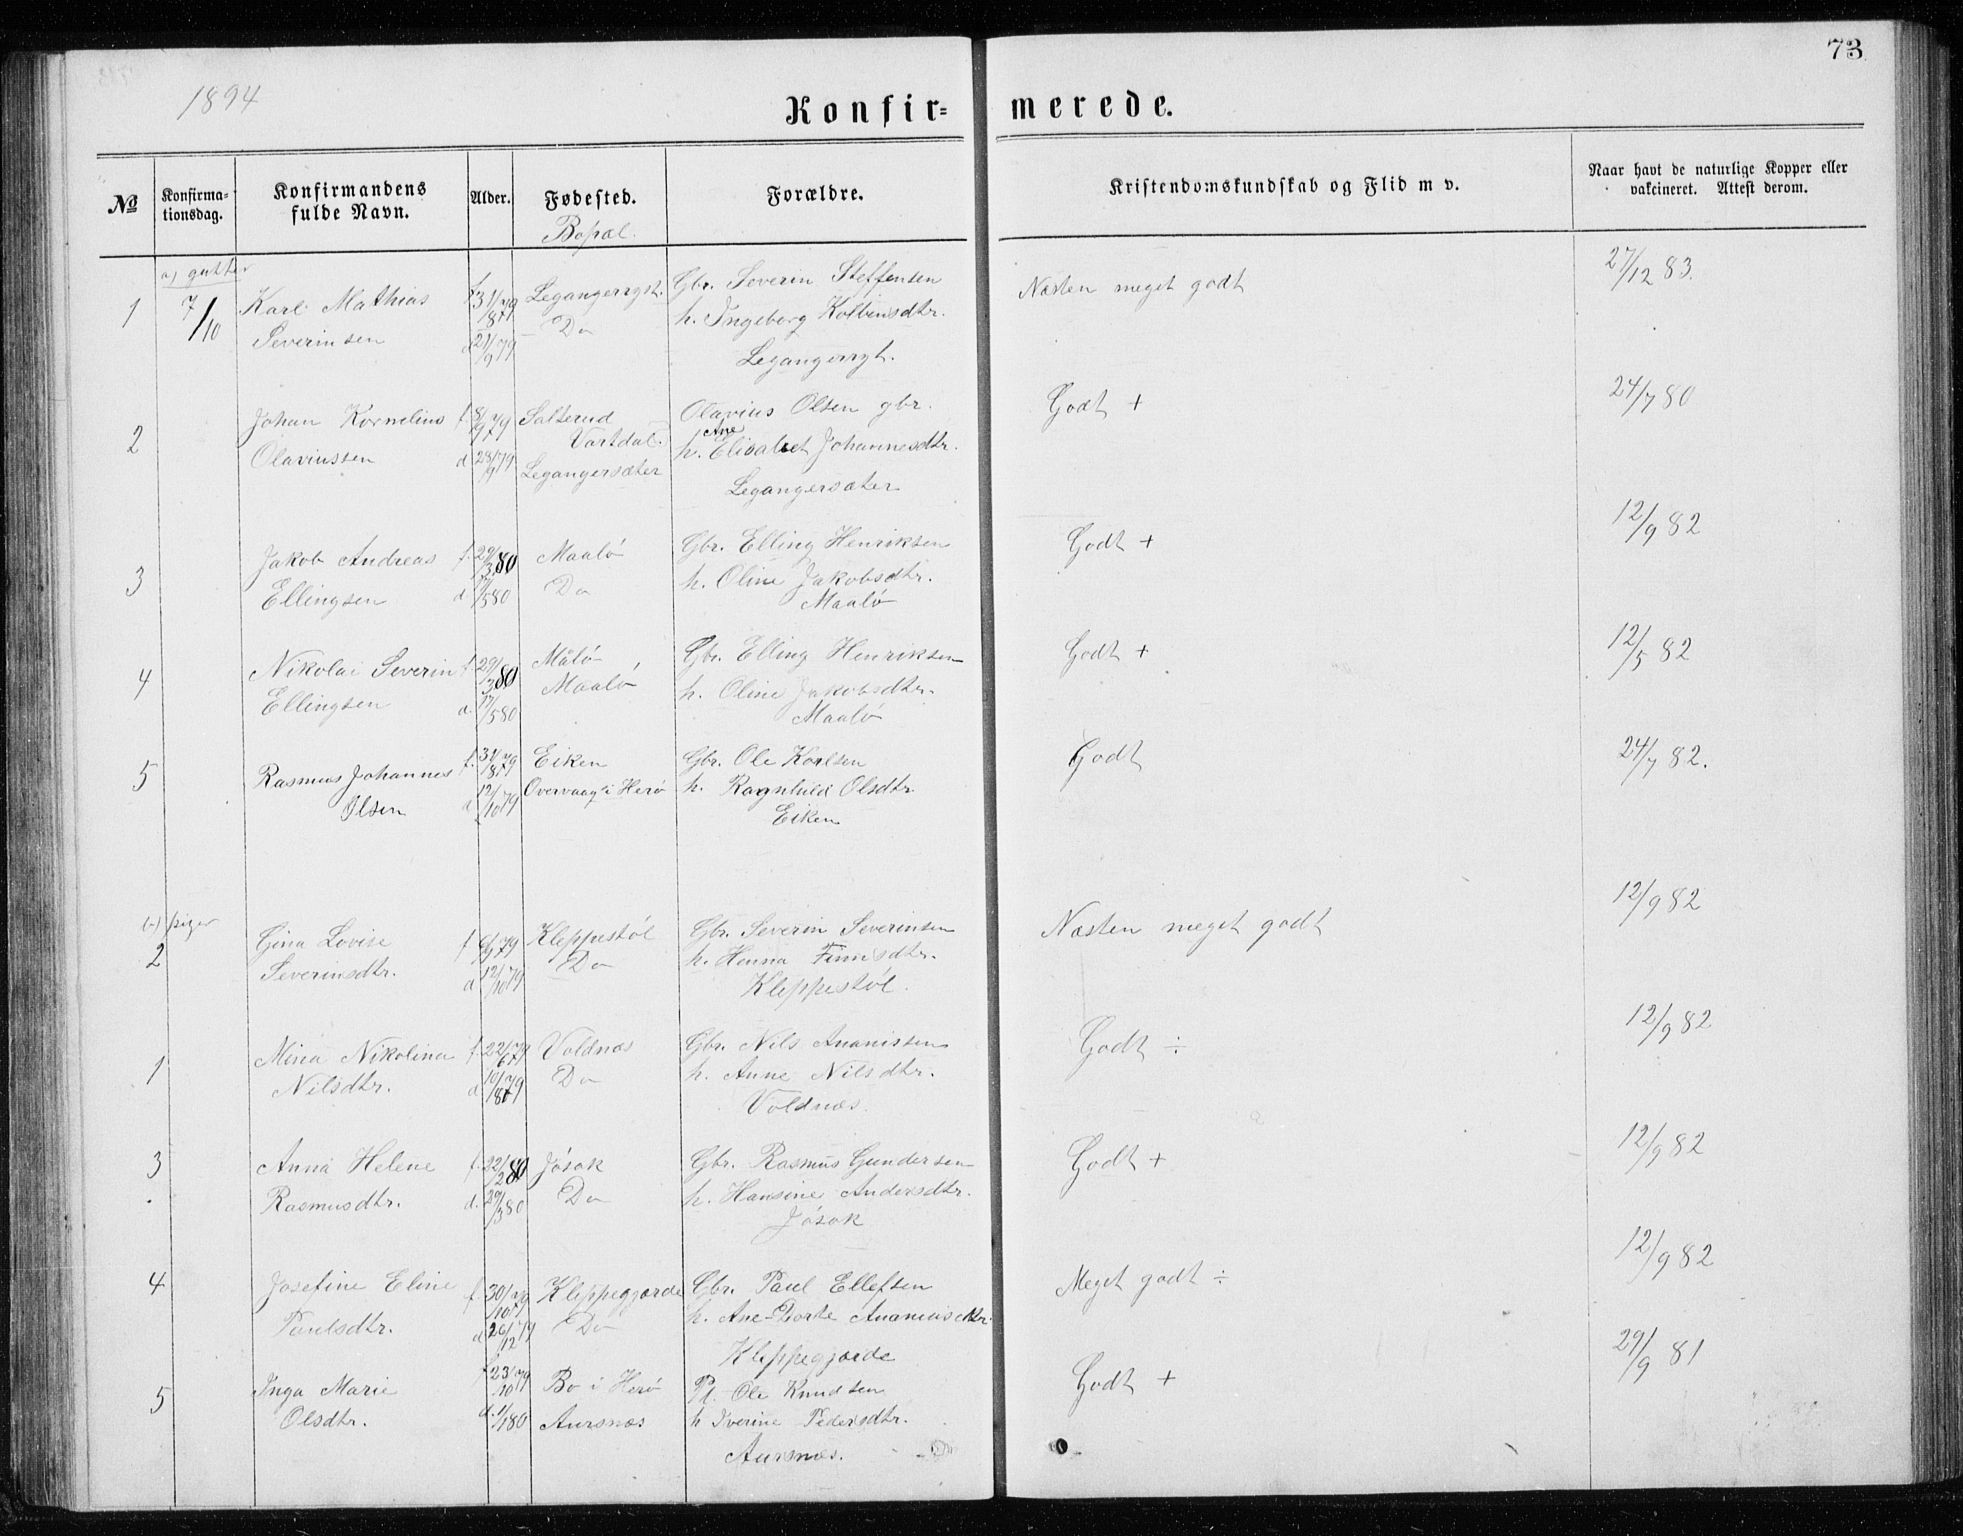 73
1894
Konfir= merede.
№ Konfirma-tionsdag. Konfirmandens fulde Navn. Alder. Fødested. Forældre. Kristendomskundskab og Flid m v. Naar havt de naturlige Kopper eller vakcineret. Attest derom.
Bopæl.
a) gutter
1 7/10 Karl Mathias f. 31/8 79 Legangerrgst. Gbr. Severin Steffensen Næsten meget godt 27/12 83.
Severinsen d. 21/9 79 Do h. Ingeborg Kolbensdtr.
Legangerrgt.
2 Johan Kornelius f. 8/9 79 Salterud Olavius Olsen gbr. Godt + 24/7 80
Vartdal. Ane
Olaviussen d. 28/9 79 Legangersæter h. Elisabet Johannesdtr.
Legangersæter
3 Jakob Andreas f. 29/3 80 Maalø Gbr. Elling Henriksen Godt + 12/9 82
Ellingsen d. 17/5 80 Do h. Oline Jakobsdtr.
Maalø
4 Nikolai Severin f. 29/3 80 Målø Gbr. Elling Henriksen Godt + 12/5 82
Ellingsen d. 17/5 80 Maalø h. Oline Jakobsdtr.
Maalø
5 Rasmus Johannes f. 31/8 79 Eiken Gbr. Ole Karlsen Godt 24/7 82.
Olsen d. 12/10 79 Overvaag i Herø h. Ragnhild Olsdtr
Eiken
piger
2 Gina Lovise f. 6/9 79 Kleppestøl Gbr. Severin Severinsen Næsten meget godt 12/9 82
Severinsdtr. d. 12/10 79 Do h. Hanna Finnsdtr.
Kleppestøl.
1 Mina Nikolina f. 22/6 79 Voldnæs Gbr. Nils Ananissen Godt ÷ 12/9 82
Nilsdtr. d. 10/8 79 Do h. Anne Nilsdtr.
Voldnæs.
3 Anna Helene f. 22/2 80 Jøsok Gbr. Rasmus Gundersen Godt + 12/9 82
Rasmusdtr. d. 29/3 80 Do h. Hansine Andersdtr.
Jøsok
4 Josefine Eline f. 30/10 79 Kleppegjærde Gbr. Paul Ellefsen Meget godt ÷ 12/9 82
Paulsdtr. d. 26/12 79 Do h. Ane-Dorte Ananiasdtr.
Kleppegjærde
5 Inga Marie f. 23/10 79 Bo i Herø Pl. Ole Knudsen Godt + 29/9 81
Olsdtr. d. 1/1 80 Aursnæs h Iverine Pedersdtr.
Aursnæs.